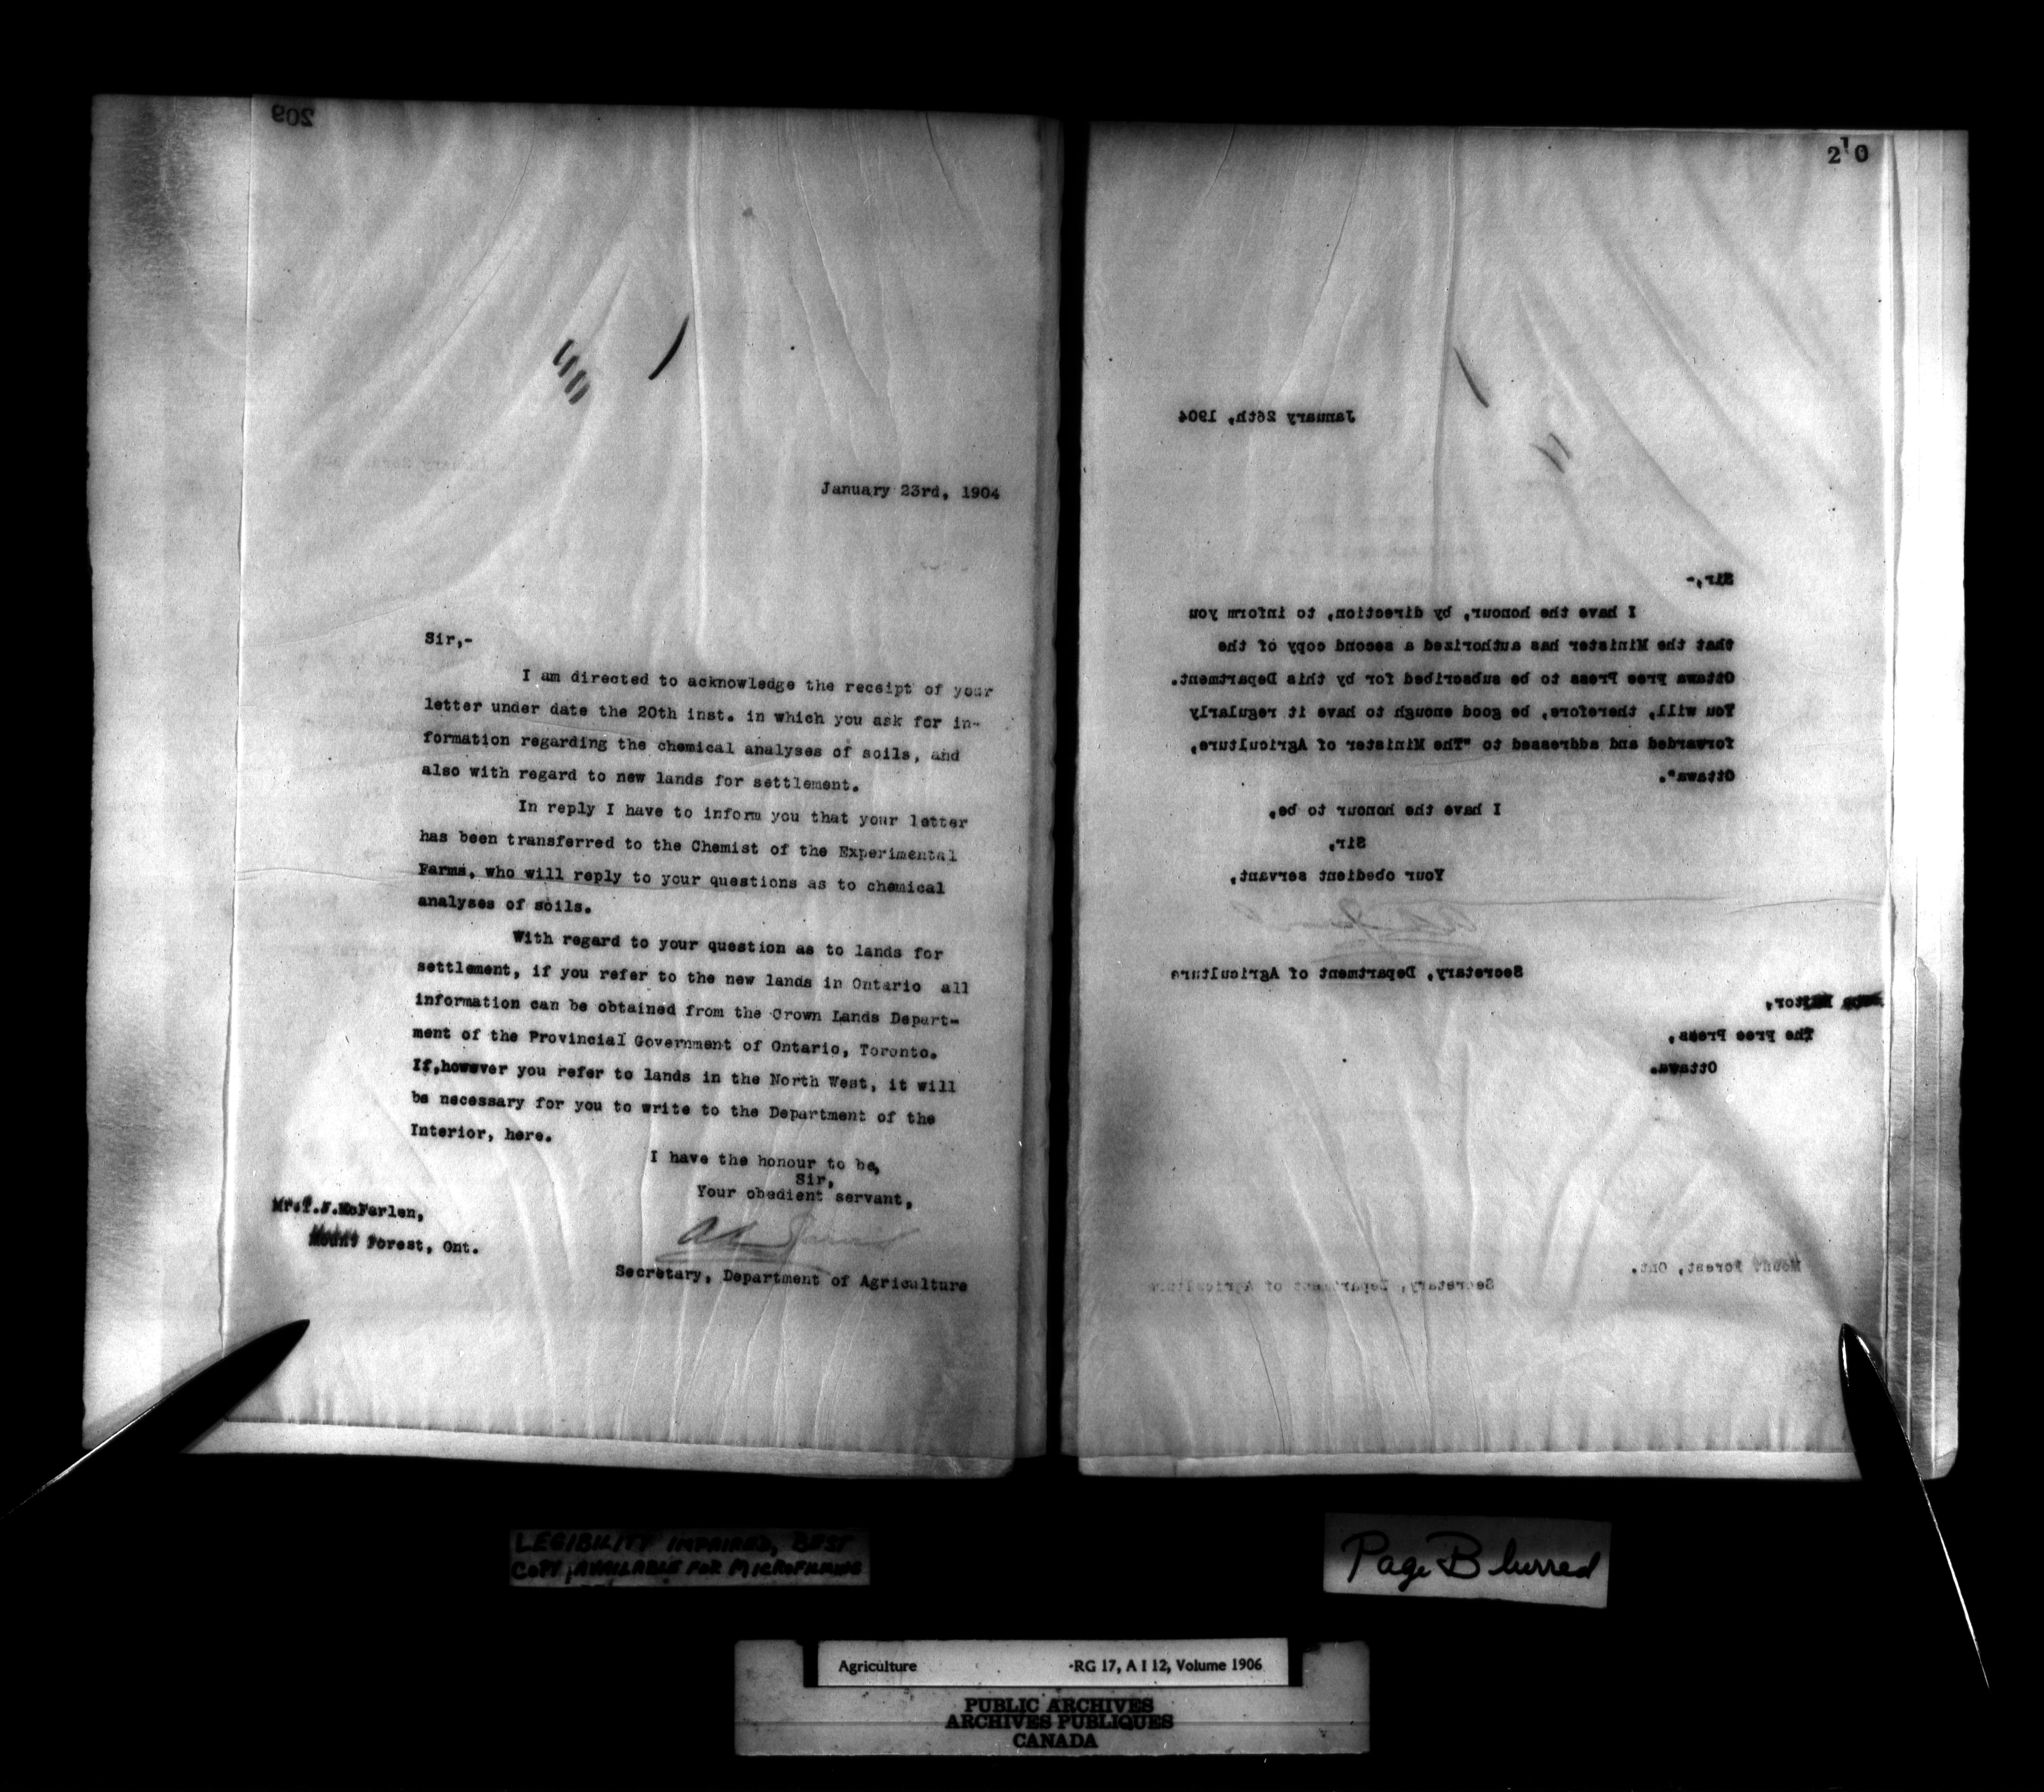 209
January 23rd, 1904
Sir,-
I am directed to acknowledge the receipt of your
letter under date the 20th inst. in which you ask for in-
formation regarding the chemical analyses of soils, and
also with regard to new lands for settlement.
In reply I have to inform you that your letter
has been transferred to the Chemist of the Experimental
Farms, who will reply to your questions as to chemical
analyses of soils.
With regard to your question as to lands for
settlement, if you refer to the new lands in Ontario all
information can be obtained from the Crown Lands Depart-
ment of the Provincial Government of Ontario, Toronto.
If,however you refer to lands in the North West, it will
be necessary for you to write to the Department of the
Interior, here.
I have the honour to be,
Sir,
Your obedient servant,
Secretary, Department of Agriculture
McFarlen,
Mount Forest, Ont.
210
January 26th, 1904
Sir,-
I have the honour, by direction, to inform you
that the Minister has authorized a second copy of the
Ottawa Free Press to be subscribed for by this Department.
You will, therefore, be good enough to have it regularly
forwarded and addressed to "The Minister of Agriculture,
Ottawa".
I have the honour to be,
Sir,
Your obedient servant,
Secretary, Department of Agriculture
Editor,
The Free Press,
Ottawa.
Mount Forest, Ont.
Secretary, Department of Agriculture
LEGIBILITY IMPAIRED, BEST
COPY AVAILABLE FOR MICROFILMING
Page Blurred
Agriculture -RG 17, A I 12, Volume 1906
PUBLIC ARCHIVES
ARCHIVES PUBLIQUES
CANADA